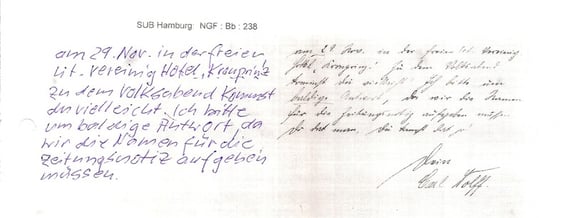 SUB Hamburg: NGF : Bb : 238
am 29. Nov. in der freien
lit. Vereinig Hotel „Kronprinz"
zu dem Volksabend kommst
du vielleicht. Ich bitte
um baldige Antwort, da
wir die Namen für die
Zeitungsnotiz aufgeben
müssen.
am 29 Nov. in der freien lit. Vereinig
Hotel „Kronprinz" zu dem Volksabend
kommst du vielleicht. Ich bitte um
baldige Antwort, da wir die Namen
für die Zeitungsnotiz aufgeben müssen
Dein
Carl Wolff.